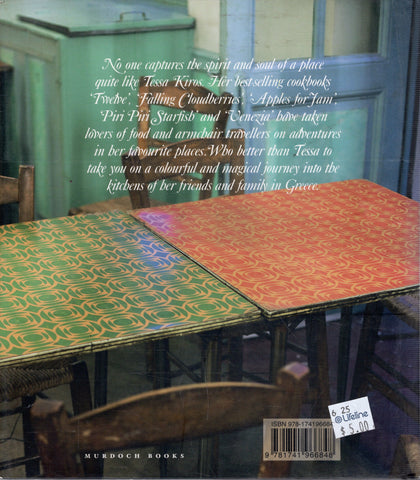 No one captures the spirit and soul of a place
quite like Tessa Kiros. Her best-selling cookbooks
'Twelve', 'Falling Cloudberries', 'Apples for Jam',
'Piri Piri Starfish' and 'Venezia' have taken
lovers of food and armchair travellers on adventures
in her favourite places. Who better than Tessa to
take you on a colourful and magical journey into the
kitchens of her friends and family in Greece.
ISBN 978-174196684
6 25
@Lifeline
$ 5.00
9 781741 966848
MURDOCH BOOKS